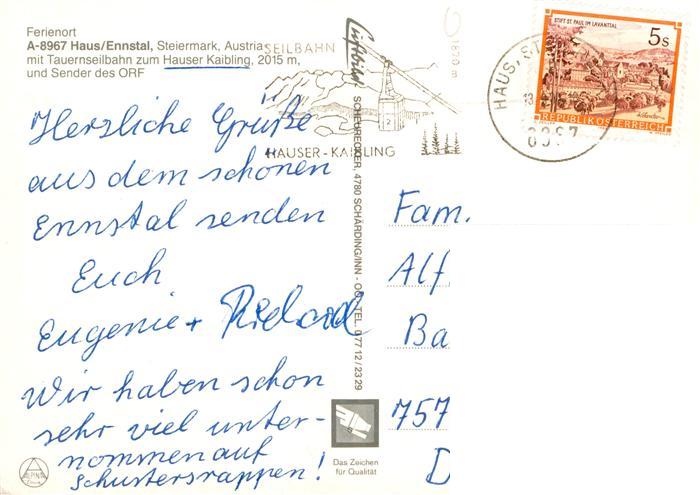 Ferienort
A-8967 Haus/Ennstal, Steiermark, Austria
mit Tauernseilbahn zum Hauser Kaibling, 2015 m,
und Sender des ORF
Herzliche Grüße
aus dem schönen
Ennstal senden
Euch
Eugenie + Richard
Wir haben schon
sehr viel unter-
nommen auf
Schustersrappen!
SEILBAHN
HAUSER-KAIBLING
Luftbild
SCHEURECKER, 4780 SCHÄRDING/INN - OÖ. TEL. 077 12 / 23 29
HAUS,
STIFT ST. PAUL IM LAVANTTAL
5 S
REPUBLIK ÖSTERREICH
Fam.
Alf
Ba
757
D
Das Zeichen
für Qualität
ALPINA